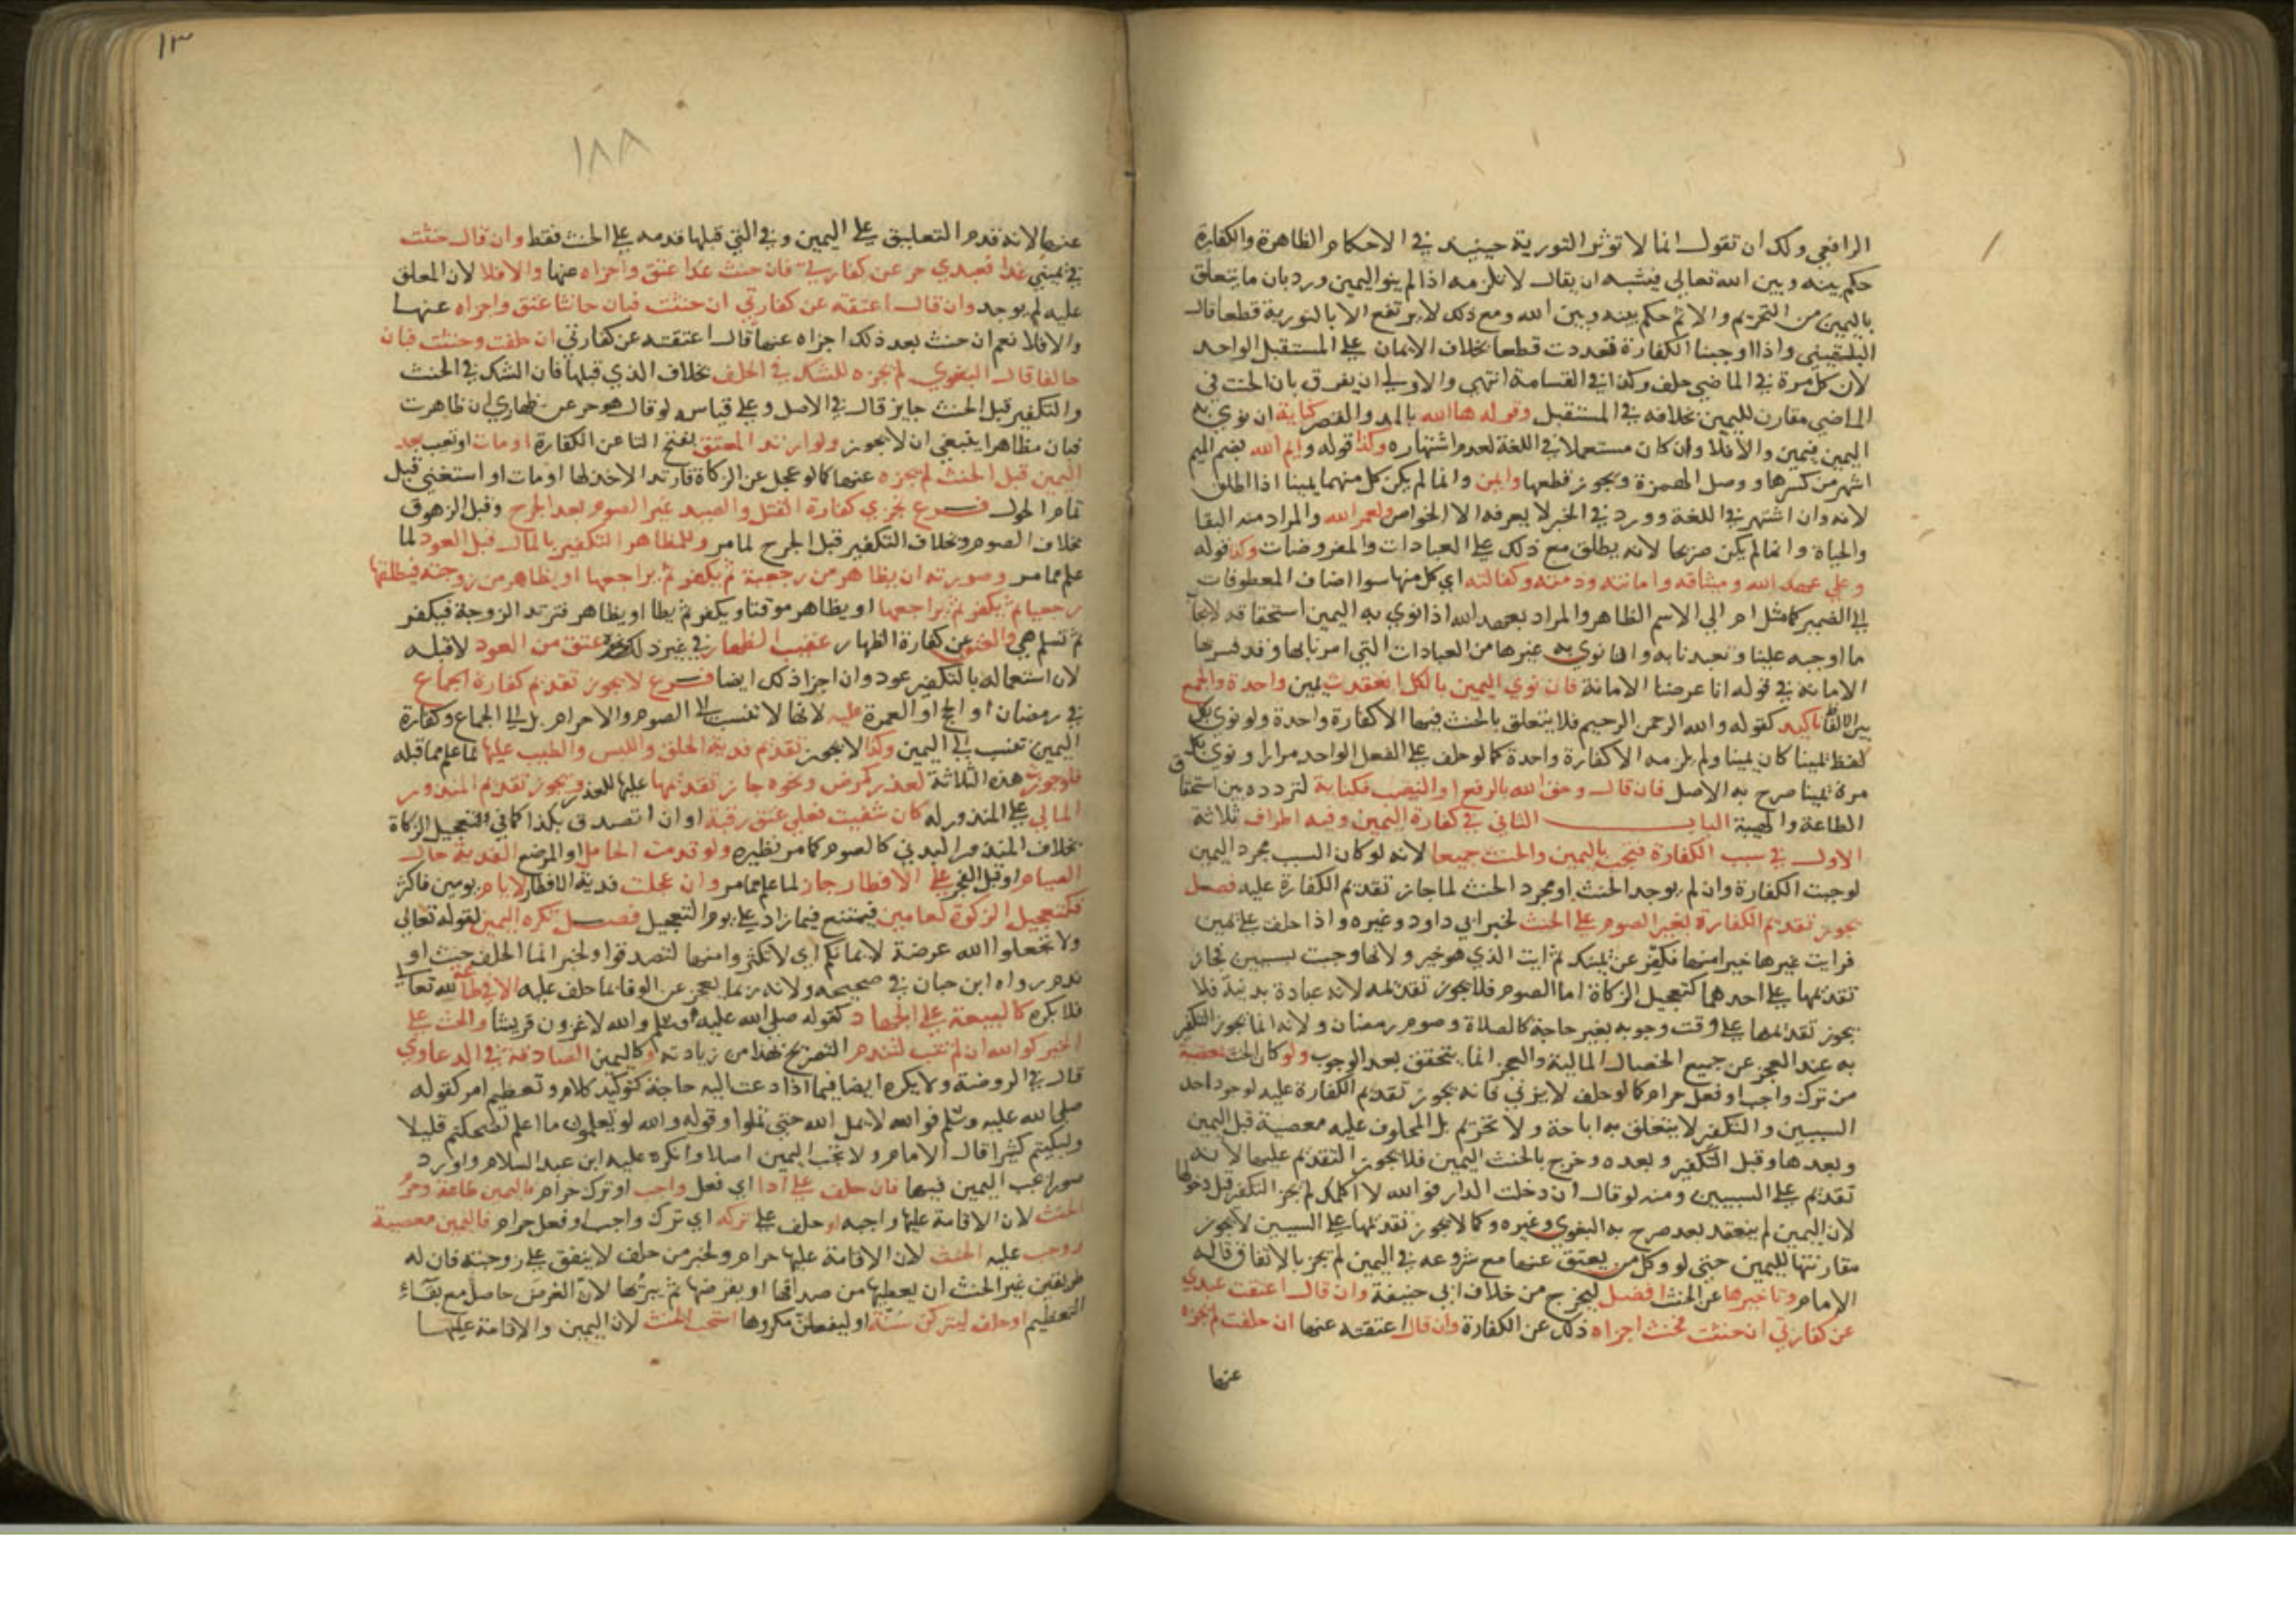 الرافعي ولك ان تقول انما لا توثر التورية حينيذ في الاحكام الظاهرة والكفارة
حكم بينه وبين الله تعالي فيشبه ان يقال لا تلزمه اذا لم ينو اليمين ورد بان ما يتعلق
باليمين من التحريم والاثم حكم بينه وبين الله ومع ذلك لا يرتفع الا بالتورية قطعا قال
البلقيني واذا اوجبنا الكفارة تعددت قطعا بخلاف الايمان علي المستقبل الواحد
لان كل مرة في الماضي حلف وكذا في القسامة انتهي والاولي ان يفرق بان الحنث في
الماضي مقارن لليمين بخلافه في المستقبل وقوله ها الله بالمد والقصر كناية ان نوي به
اليمين فيمين والا فلا وان كان مستعملا في اللغة لعدم اشتهاره وكذا قوله وايم الله بضم الميم
اشهر من كسرها ووصل الهمزة ويجوز قطعها وايمن وانما لم يكن كل منهما يمينا اذا اطلق
لانه وان اشتهر في اللغة وورد في الخبر لا يعرفه الا الخواص ولعمر الله والمراد منه البقا
والحياة وانما لم يكن صريحا لانه يطلق مع ذلك علي العبادات والمفروضات وكذا قوله
وعلي عهد الله وميثاقه وامانته وذمته وكفالته اي كل منها سوا اضاف المعطوفات
الي الضمير كما مثل ام الي الاسم الظاهر والمراد بعهد الله اذا نوي به اليمين استحقاقه لايجاب
ما اوجبه علينا وتعبدنا به واذا نوي به غيرها من العبادات التي امرنا بها وقد فسر بها
الامانة في قوله انا عرضنا الامانة فان نوي اليمين بالكل انعقدت يمين واحدة والجمع
بين الالفاظ تاكيد كقوله والله الرحمن الرحيم فلا يتعلق بالحنث فيها الا كفارة واحدة ولو نوي بكل
لفظ يمينا كان يمينا ولم يلزمه الا كفارة واحدة كما لو حلف علي الفعل الواحد مرارا ونوي بكل
مرة يمينا صرح به الاصل فان قال وحق الله بالرفع او النصب فكناية لتردده بين استحقاق
الطاعة والهيبة الباب الثاني في كفارة اليمين وفيه اطراف ثلاثة
الاول في سبب الكفارة فتجب باليمين والحنث جميعا لانه لو كان السبب مجرد اليمين
لوجبت الكفارة وان لم يوجد الحنث او مجرد الحنث لما جاز تقديم الكفارة عليه فصل
يجوز تقديم الكفارة بغير الصوم علي الحنث لخبر ابي داود وغيره واذا حلف علي يمين
فرايت غيرها خيرا منها فكفر عن يمينك ثم ايت الذي هو خير ولانها وجبت بسببين فجاز
تقديمها علي احدهما كتعجيل الزكاة اما الصوم فلا يجوز تقديمه لانه عبادة بدنية فلا
يجوز تقديمها علي وقت وجوبه بغير حاجة كالصلاة وصوم رمضان ولانه انما يجوز التكفير
به عند العجز عن جميع الخصال المالية والعجز انما يتحقق بعد الوجوب ولو كان الحنث بمعصية
من ترك واجب او فعل حرام كما لو حلف لا يزني فانه يجوز تقديم الكفارة عليه لوجود احد
السببين والتكفير لا يتعلق به اباحة ولا تحريم بل المحلوف عليه معصية قبل اليمين
وبعدها وقبل التكفير وبعده وخرج بالحنث اليمين فلا يجوز التقديم عليها لانه
تقديم علي السببين ومنه لو قال ان دخلت الدار فوالله لا اكلمك لم يجز التكفير قبل دخولها
لان اليمين لم ينعقد بعد صرح به البغوي وغيره وكما لا يجوز تقديمها علي السببين لا يجوز
مقارنتها لليمين حتي لو وكل من يعتق عنها مع شروعه في اليمين لم يجز بالاتفاق قاله
الامام وتاخيرها عن الحنث افضل ليخرج من خلاف ابي حنيفة وان قال اعتقت عبدي
عن كفارتي ان حنثت فحنث اجزاه ذلك عن الكفارة وان قال اعتقته عنها ان حلفت لم يجزه
عنها
١٣
١٨٨
عنها لانه قدم التعليق علي اليمين وفي التي قبلها قدمه علي الحنث فقط وان قال حنثت
في يميني غدا فعبدي حر عن كفارتي فان حنث غدا عتق واجزاه عنها والا فلا لان المعلق
عليه لم يوجد وان قال اعتقته عن كفارتي ان حنثت فبان حانثا عتق واجزاه عنها
والا فلا نعم ان حنث بعد ذلك اجزاه عنها قال اعتقته عن كفارتي ان حلفت وحنثت فبان
حالفا قال البغوي لم يجزه للشك في الحلف بخلاف الذي قبلها فان الشك في الحنث
والتكفير قبل الحنث جايز قال في الاصل وعلي قياسه لو قال هو حر عن ظهاري ان ظاهرت
فبان مظاهرا ينبغي ان لا يجوز ولو ارتد المعتق بفتح التا عن الكفارة او مات او تعيب بعد
اليمين قبل الحنث لم يجزه عنها كما لو عجل عن الزكاة فارتد الاخذ لها او مات او استغني قبل
تمام الحول فرع يجزي كفارة القتل والصيد غير الصوم بعد الجرح وقبل الزهوق
بخلاف الصوم وبخلاف التكفير قبل الجرح لما مر وللمظاهر التكفير بالمال قبل العود لما
علم مما مر وصورته ان يظاهر من رجعية ثم يكفر ثم يراجعها او يظاهر من زوجته فيطلقها
رجعيا ثم يكفر ثم يراجعها او يظاهر موقتا ويكفر ثم يطا او يظاهر فترتد الزوجة فيكفر
ثم تسلم هي والعتق عن كفارة الظهار عقيب الظهار في غير ذلك عتق من العود لا قبله
لان اشتغاله بالتكفير عود وان اجزا ذلك ايضا فرع لا يجوز تقديم كفارة الجماع
في رمضان او الحج او العمرة عليه لانها لا تنسب الي الصوم والاحرام بل الي الجماع وكفارة
اليمين تنسب الي اليمين وكذا لا يجوز تقديم فدية الحلق واللبس والطيب عليها لما علم مما قبله
فلو جوزت هذه الثلاثة لعذر كمرض ونحوه جاز تقديمها عليها للعذر ويجوز تقديم المنذور
المالي علي المنذور له كان شفيت فعلي عتق رقبة او ان اتصدق بكذا كما في تعجيل الزكاة
بخلاف المنذور البدني كالصوم كما مر نظيره ولو قدمت الحامل او المرضع الفدية حال
الصيام او قبل الفجر علي الافطار جاز لما علم مما مر وان عجلت فدية الافطار لايام يومين فاكثر
فكتعجيل الزكوة لعامين فيمتنع فيما زاد علي يوم التعجيل فصل تكره اليمين لقوله تعالي
ولا تجعلوا الله عرضة لايمانكم اي لا تكثروا منها لتصدقوا ولخبر انما الحلف حنث او
ندم رواه ابن حبان في صحيحه ولانه ربما يعجز عن الوفا بما حلف عليه الا في طاعة لله تعالي
فلا يكره كالبيعة علي الجهاد كقوله صلي الله عليه وسلم والله لاغزون قريشا والحث علي
الخير كوالله ان لم تتب لتندم التصريح بهذا من زيادته او كاليمين الصادقة في الدعاوي
قال في الروضة ولا يكره ايضا فيما اذا دعت اليه حاجة كتوكيد كلام وتعظيم امر كقوله
صلي الله عليه وسلم فوالله لا يمل الله حتي تملوا وقوله والله لو تعلمون ما اعلم لضحكتم قليلا
ولبكيتم كثيرا قال الامام ولا تجب اليمين اصلا وانكره عليه ابن عبد السلام واورد
صورا تجب اليمين فيها فان حلف علي ادا اي فعل واجب او ترك حرام فاليمين طاعة وحرم
الحنث لان الاقامة عليها واجبه او حلف علي تركه اي ترك واجب او فعل حرام فاليمين معصية
ووجب عليه الحنث لان الاقامة عليها حرام ولخبر من حلف لا ينفق علي زوجته فان له
طريقين غير الحنث ان يعطيها من صداقها او يقرضها ثم يبرئها لان الغرض حاصل مع بقآء
التعظيم او حلف ليتركن سنة او ليفعلن مكروها استحب الحنث لان اليمين والاقامة عليها